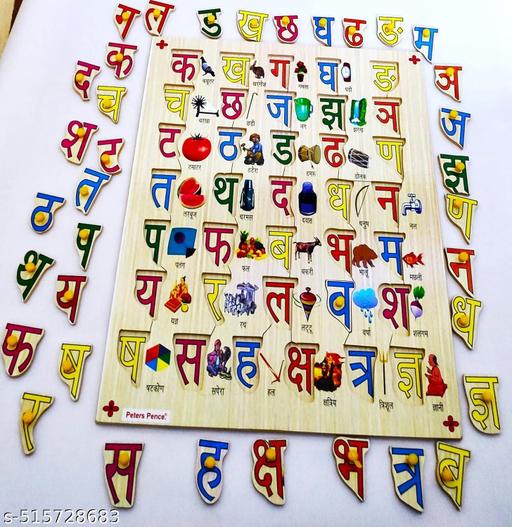 ग ल ड ख छ घ ढ ङ म
क
द
च
श ट
त
ठ
प
थ
य
फ
ष
र
क ख ग घ ङ
कबूतर खरगोश गमला घड़ी
च छ ज झ ञ
चरखा छड़ी जग झरना
ट ठ ड ढ ण
टमाटर ठठेरा डमरू ढोलक
त थ द ध न
तरबूज थरमस दवात धनुष नल
प फ ब भ म
पतंग फल बकरी भालू मछली
य र ल व श
यज्ञ रथ लट्टू वर्षा शलगम
ष स ह क्ष त्र ज्ञ
षटकोण सपेरा हल क्षत्रिय त्रिशूल ज्ञानी
Peters Pence
ञ
ज
झ
ण
न
ध
ज्ञ
स ह क्ष भ त्र ब
s-515728683